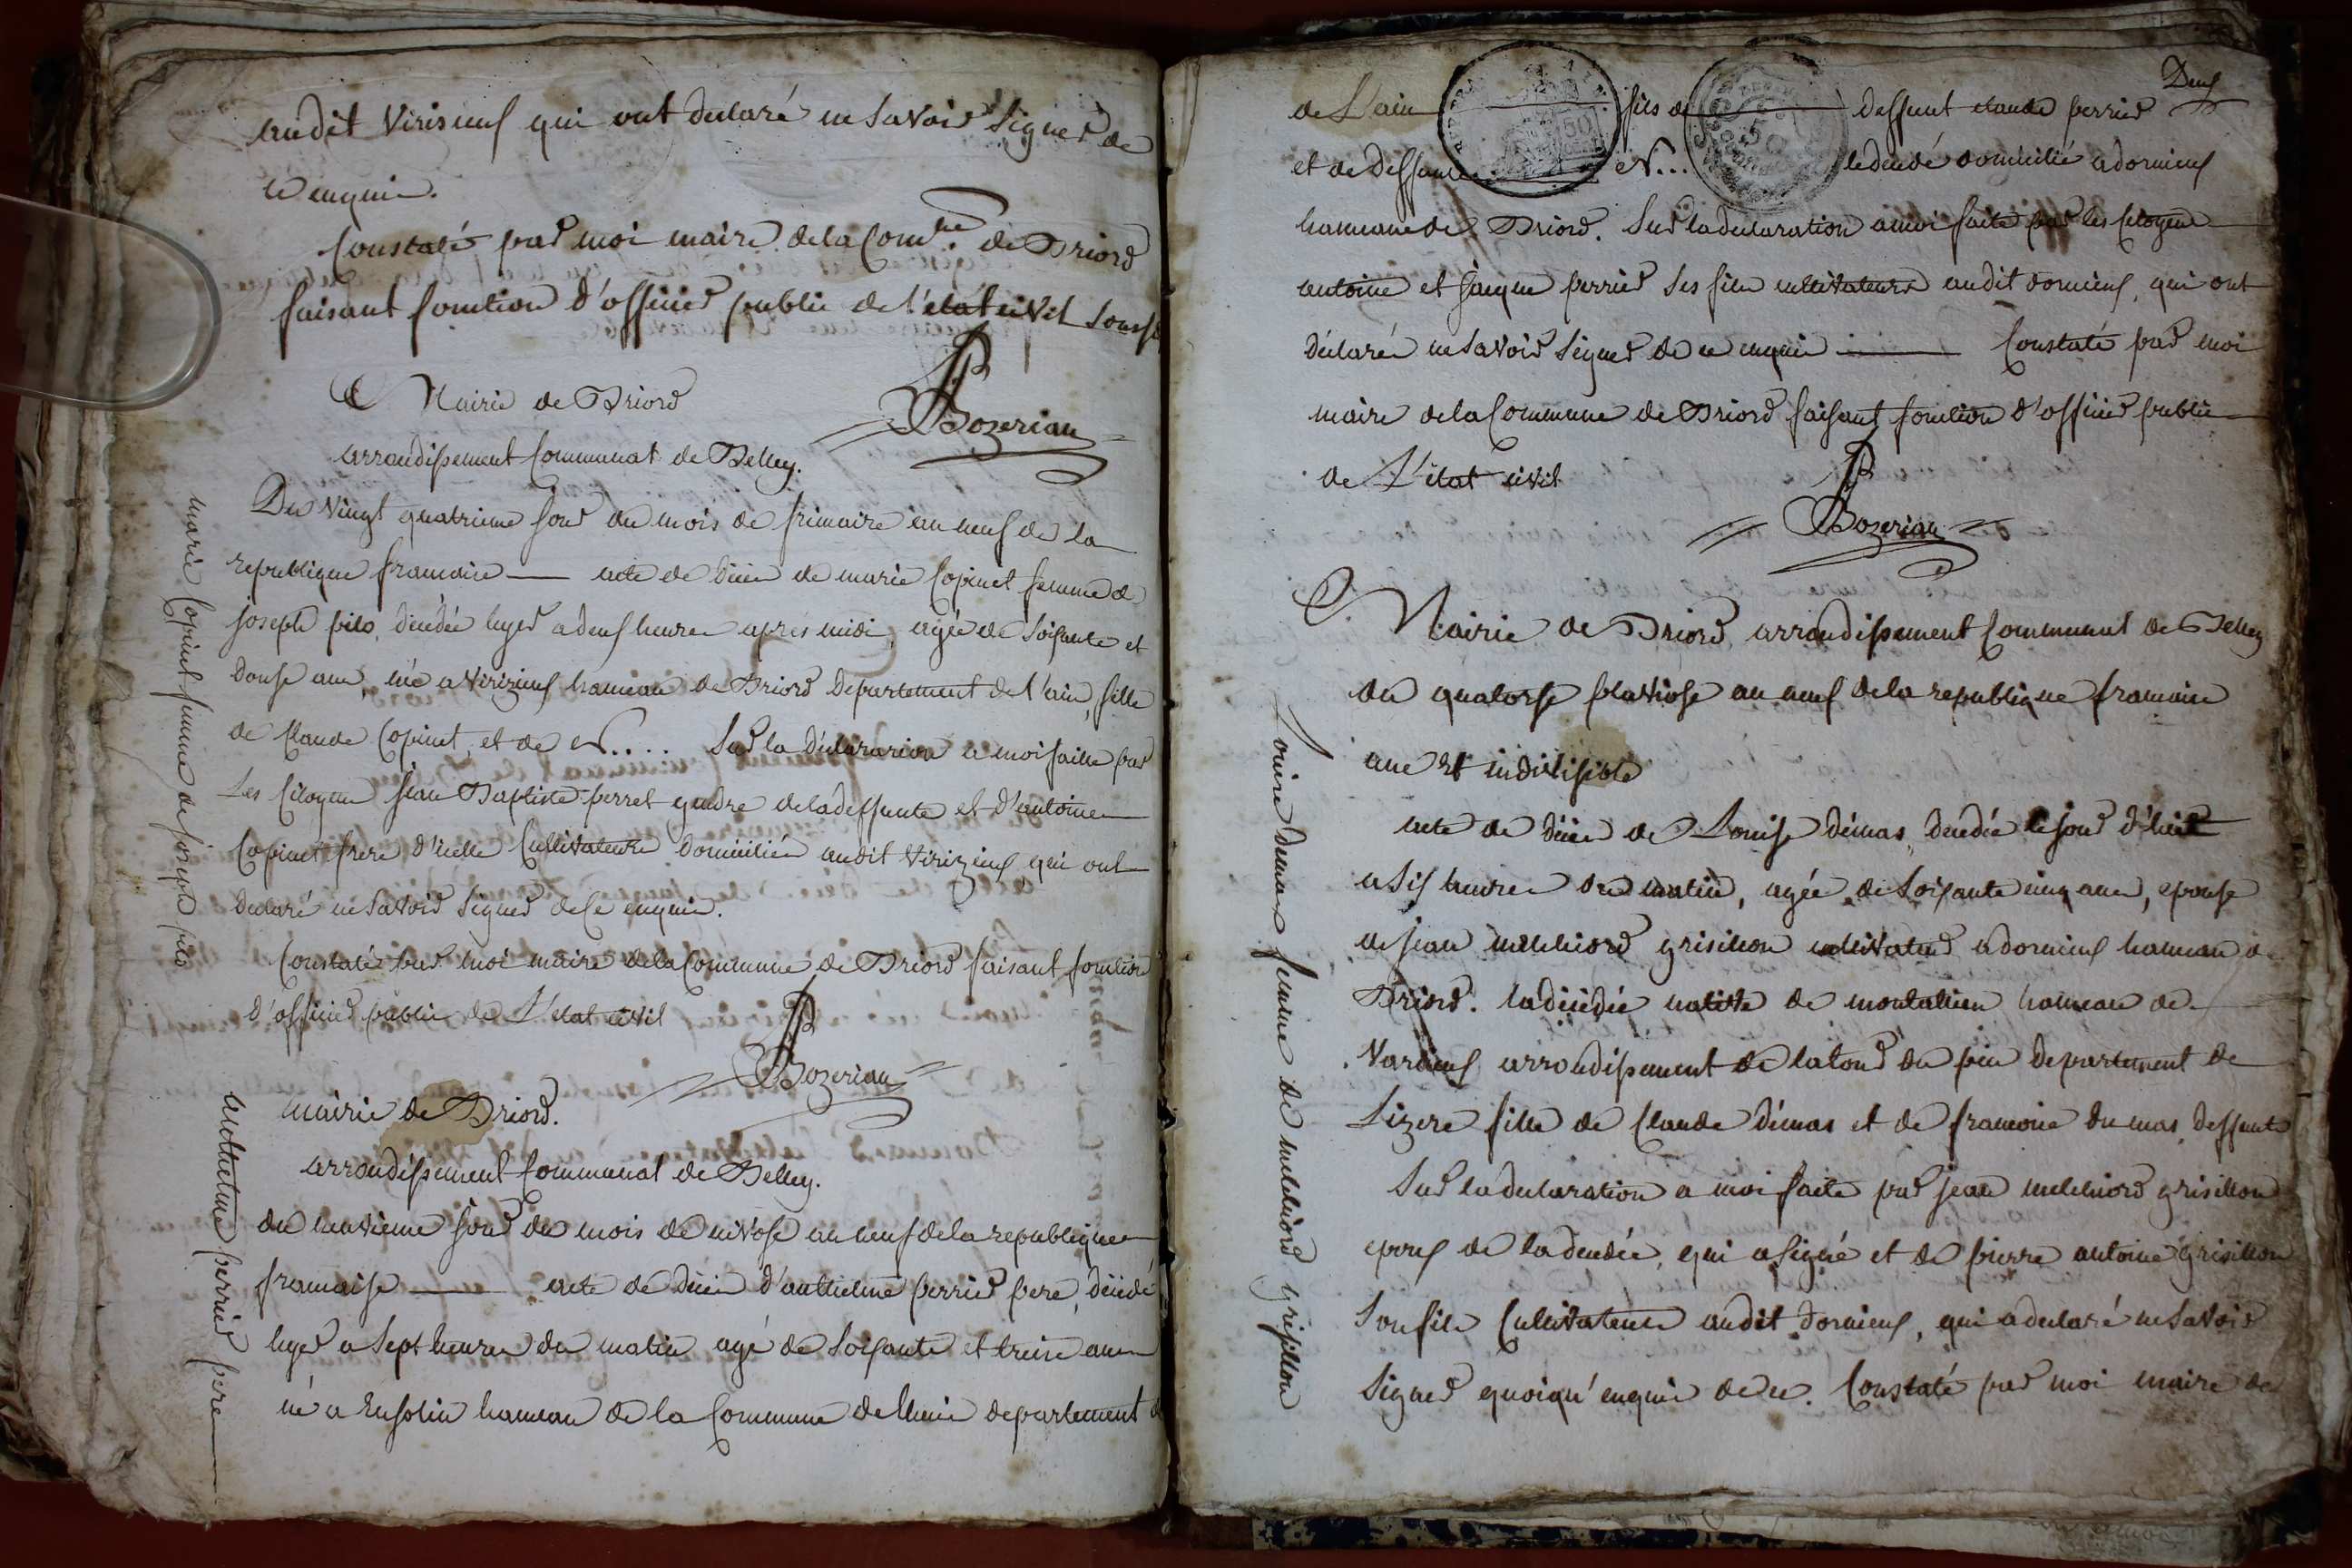 audit Virisieuf qui ont declaré ne savoir signer de
ce enquis.
Constaté par moi maire de la Com.ne de Briord
faisant fonction d'officier public de l'etat civil sous
Bozerian
Mairie de Briord
arrondissement Communal de Belley.
Du vingt quatrieme jour du mois de frimaire an neuf de la
republique francaise — acte de décès de marie Copinet femme de
joseph pilo, décédée hyer a deuf heures apres midi, agée de soisante et
douse ans, née a Virizieuf hameau de Briord Departement de l'ain, fille
de Claude Copinet et de N.... Sur la déclaration a moi faite par
Les Citoyens jean Baptiste perret gendre de la deffunte et d'antoine
Copinet frere d'icelle Cultivateurs domiciliés audit Virizieuf qui ont
declaré ne savoir signer de ce enquis.
Constaté par moi maire de la Commune de Briord faisant fonction
d'officier public de L'etat civil
Bozerian
marie Copinet femme de joseph pilo
mairie de Briord.
arrondissement Communal de Belley.
du neuvieme jour du mois de nivose an neuf de la republique
francaise — acte de décès d'anthelme perrier pere, décédé
hyer a sept heures du matin agé de soisante et treise ans
né a Ensolin hameau de la Commune de Lhuis departement d
anthelme perrier pere
Deuf
de L'ain fils de deffunt claude perrier
et de deffunte N... le décédé domicilié a dornieuf
hameau de Briord. Sur la declaration a moi faite par les Citoyens
antoine et jaque perrier ses fils cultivateurs audit dornieuf, qui ont
déclaré ne savoir signer de ce enquis — Constaté par moi
maire de la Commune de Briord faisant fonction d'officier public
de L'etat civil
Bozerian
Mairie de Briord arrondissement Communal de Belley
du quatorse pluviose an neuf de la republique francaise
une et indivisible
acte de décès de Louise Démas, décédée le jour d'hier
a sis heures du matin, agée de soisante cinq ans, epouse
de jean melchiord grisillon cultivateur a dornieuf hameau de
Briord. la décédée native de montalieu hameau de
Vercieuf arrondissement de la tour du pin departement de
Lizere fille de Claude Démas et de francoise dumas, deffunts
Sur la declaration a moi faite par jean melchiord grisillon
epouf de la décédée, qui a signé et de pierre antoine grisillon
Son fils Cultivateurs audit Dornieuf, qui a declaré ne savoir
signer quoiqu'enquis de ce. Constaté par moi maire de
Louise Demas femme de melchiord grisillon